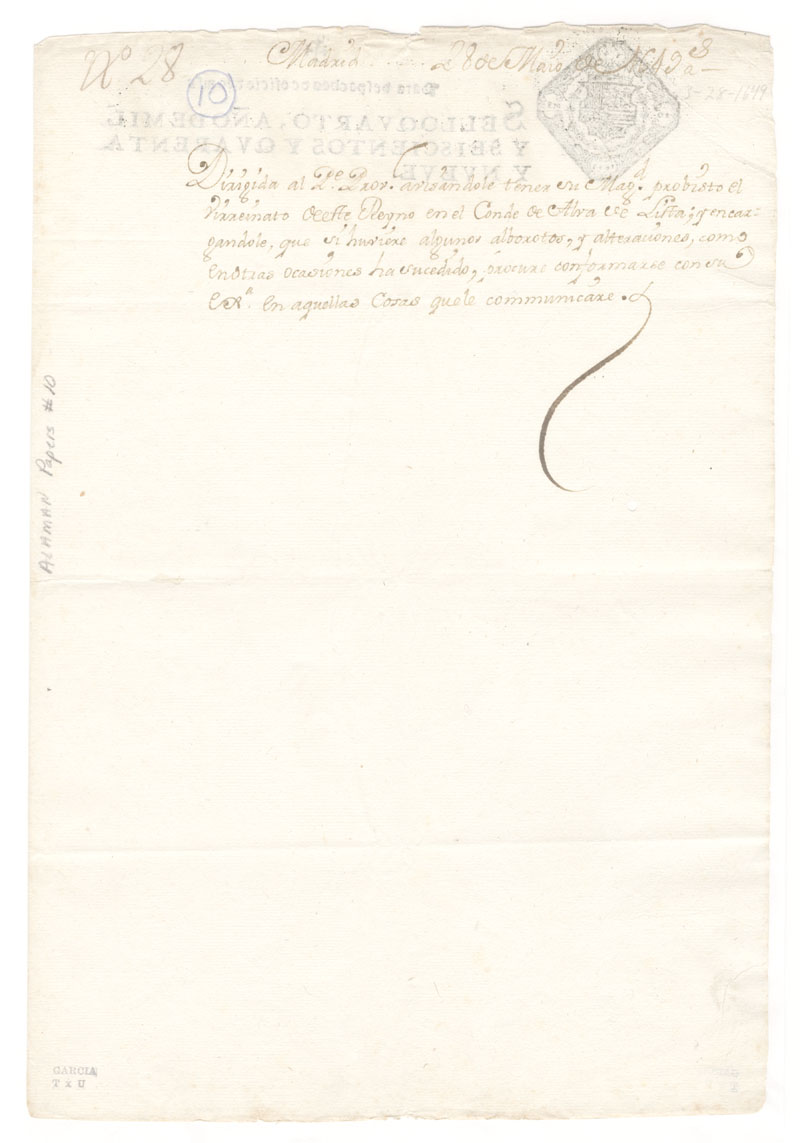 Nº 28
Madrid 28 de Maio de 1649 aˢ
10
3-28-1649
Para despachos de oficio
SELLO QVARTO, AÑO DE MIL
Y SEISCIENTOS Y QVARENTA
Y NVEVE
Dirigida al Pᵉ. Provᵒʳ. avisandole tener su Magᵈ. probisto el
Virreinato de este Reyno en el Conde de Alva de Lista; y encar-
gandole, que si huviere algunos alborotos, y alteraciones, como
en otras ocasiones ha sucedido, procure conformarse con su
Exᵃ. en aquellas cosas que le communicare.
ALAMAN Papers #10
GARCIA
T x U